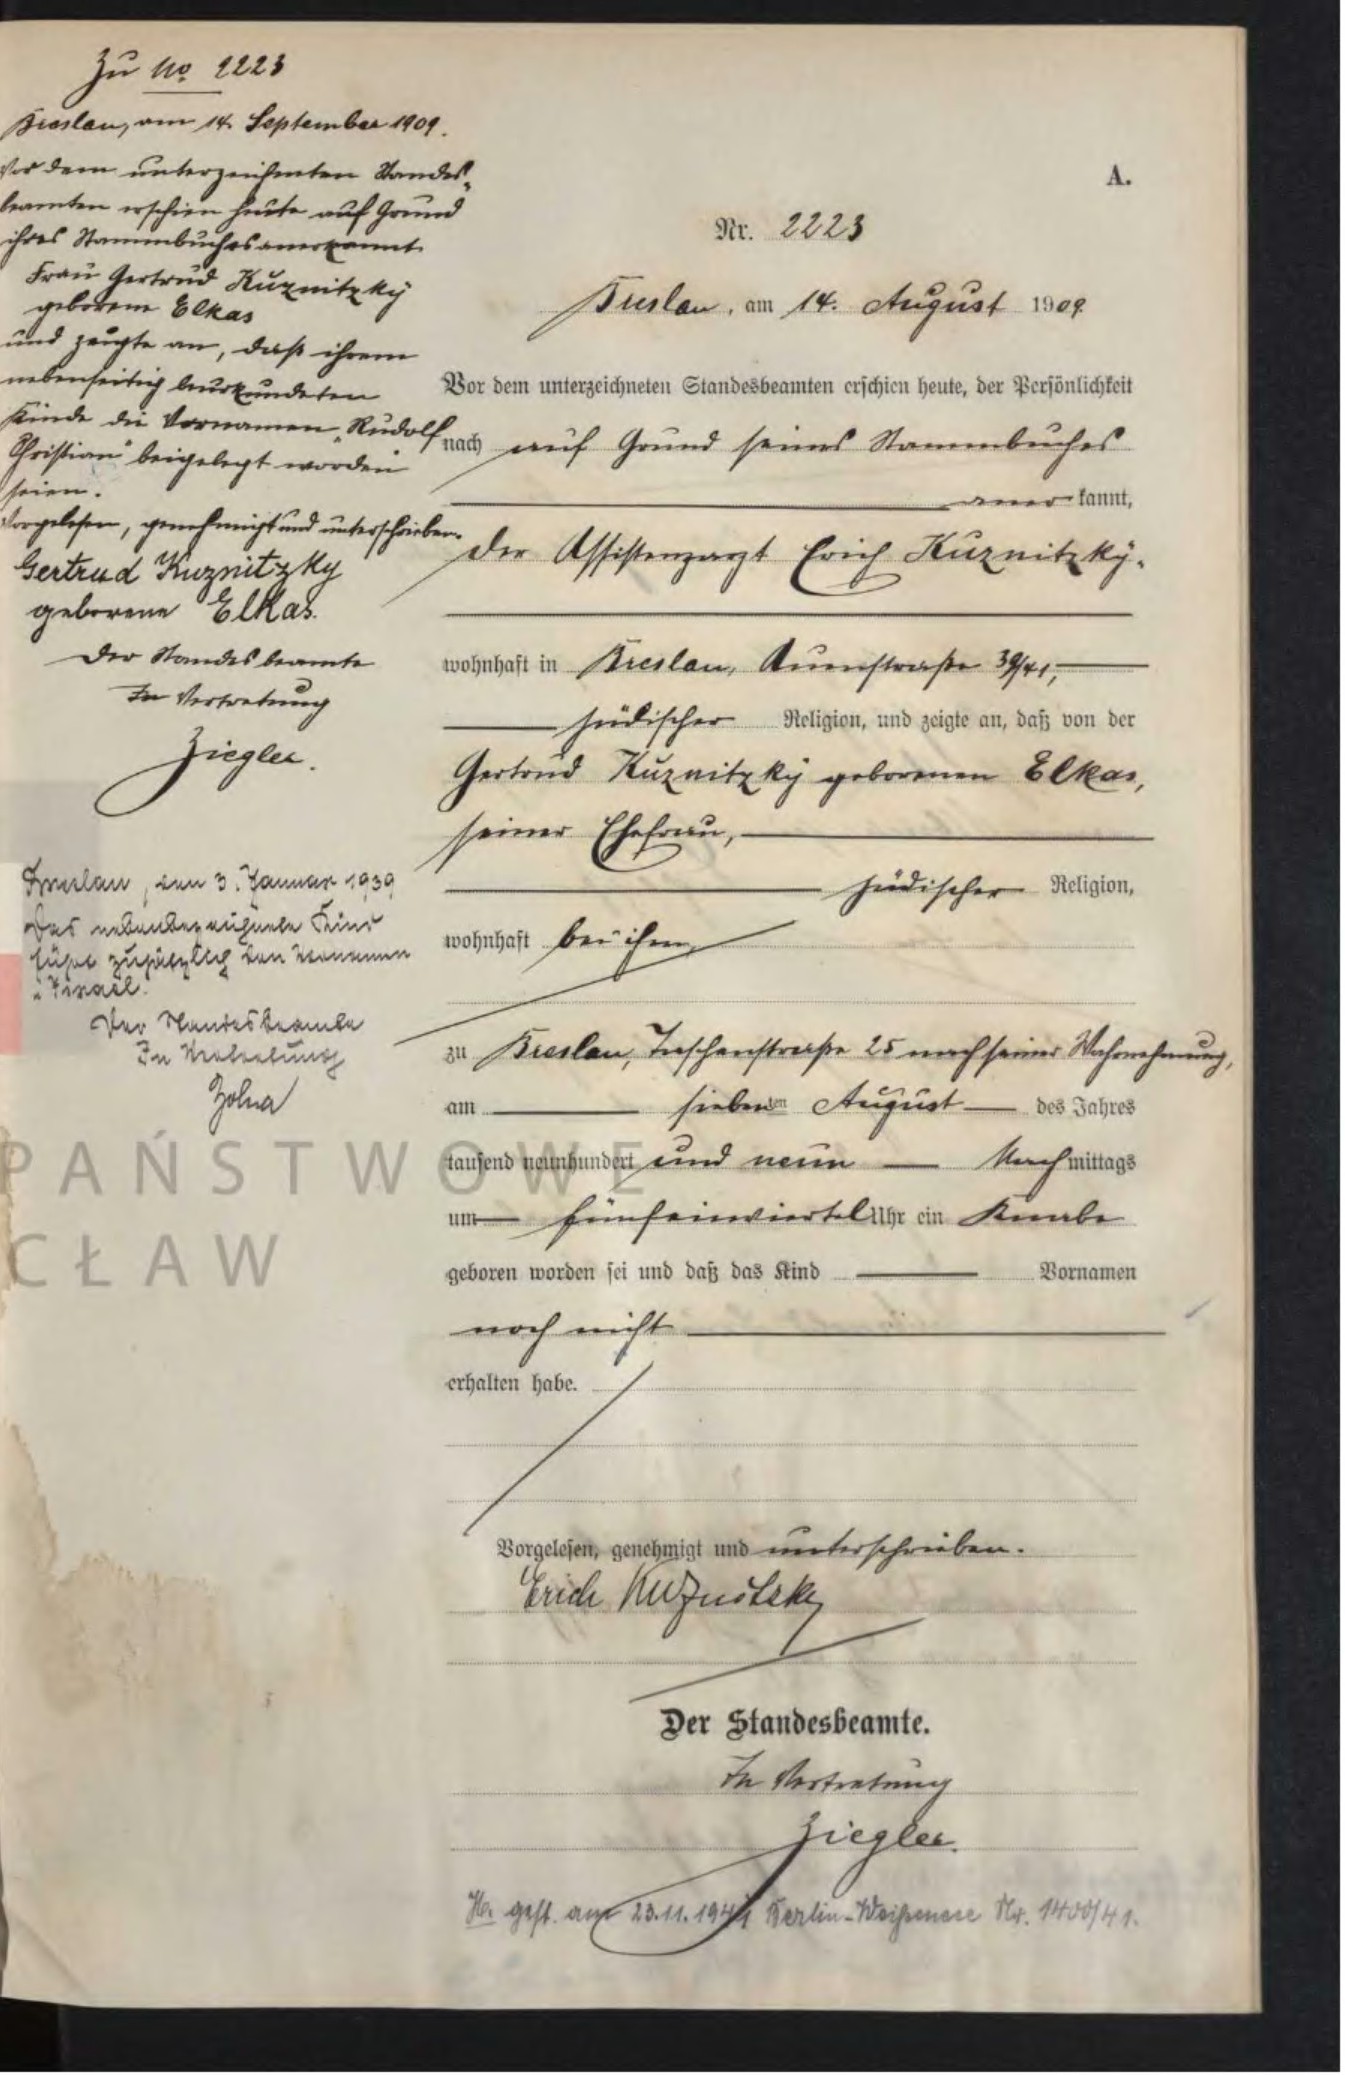 Zu No 2223
Breslau, am 14. September 1909.
Vor dem unterzeichneten Standes-
beamten erschien heute auf Grund
ihres Stammbuches anerkannt
Frau Gertrud Kuznitzky
geborene Elkas
und zeigte an, daß ihrem
nebenseitig beurkundeten
Kinde die Vornamen „Rudolf
Christian" beigelegt worden
seien.
Vorgelesen, genehmigt und unterschrieben.
Gertrud Kuznitzky
geborene Elkas.
Der Standesbeamte
In Vertretung
Ziegler.
Breslau, den 3. Januar 1939
Das nebenbezeichnete Kind
führt zusätzlich den Vornamen
: Israel.
Der Standesbeamte
In Vertretung
PAŃSTWOWE
CŁAW
A.
Nr. 2223
Breslau, am 14. August 1909
Vor dem unterzeichneten Standesbeamten erschien heute, der Persönlichkeit
nach auf Grund seines Stammbuches
anerkannt,
der Assistenzarzt Erich Kuznitzky.
wohnhaft in Breslau, Auenstraße 39/41,
jüdischer Religion, und zeigte an, daß von der
Gertrud Kuznitzky geborenen Elkas,
seiner Ehefrau,
jüdischer Religion,
wohnhaft bei ihm
zu Breslau, Taschenstraße 25 nach seiner Wahrnehmung,
am siebenten August des Jahres
tausend neunhundert und neun Nachmittags
um fünfeinviertel Uhr ein Knabe
geboren worden sei und daß das Kind Vornamen
noch nicht
erhalten habe.
Vorgelesen, genehmigt und unterschrieben.
Erich Kuznitzky
Der Standesbeamte.
In Vertretung
Ziegler.
gest. am 23.11.1941 Berlin-Weißensee Nr. 1400/41.